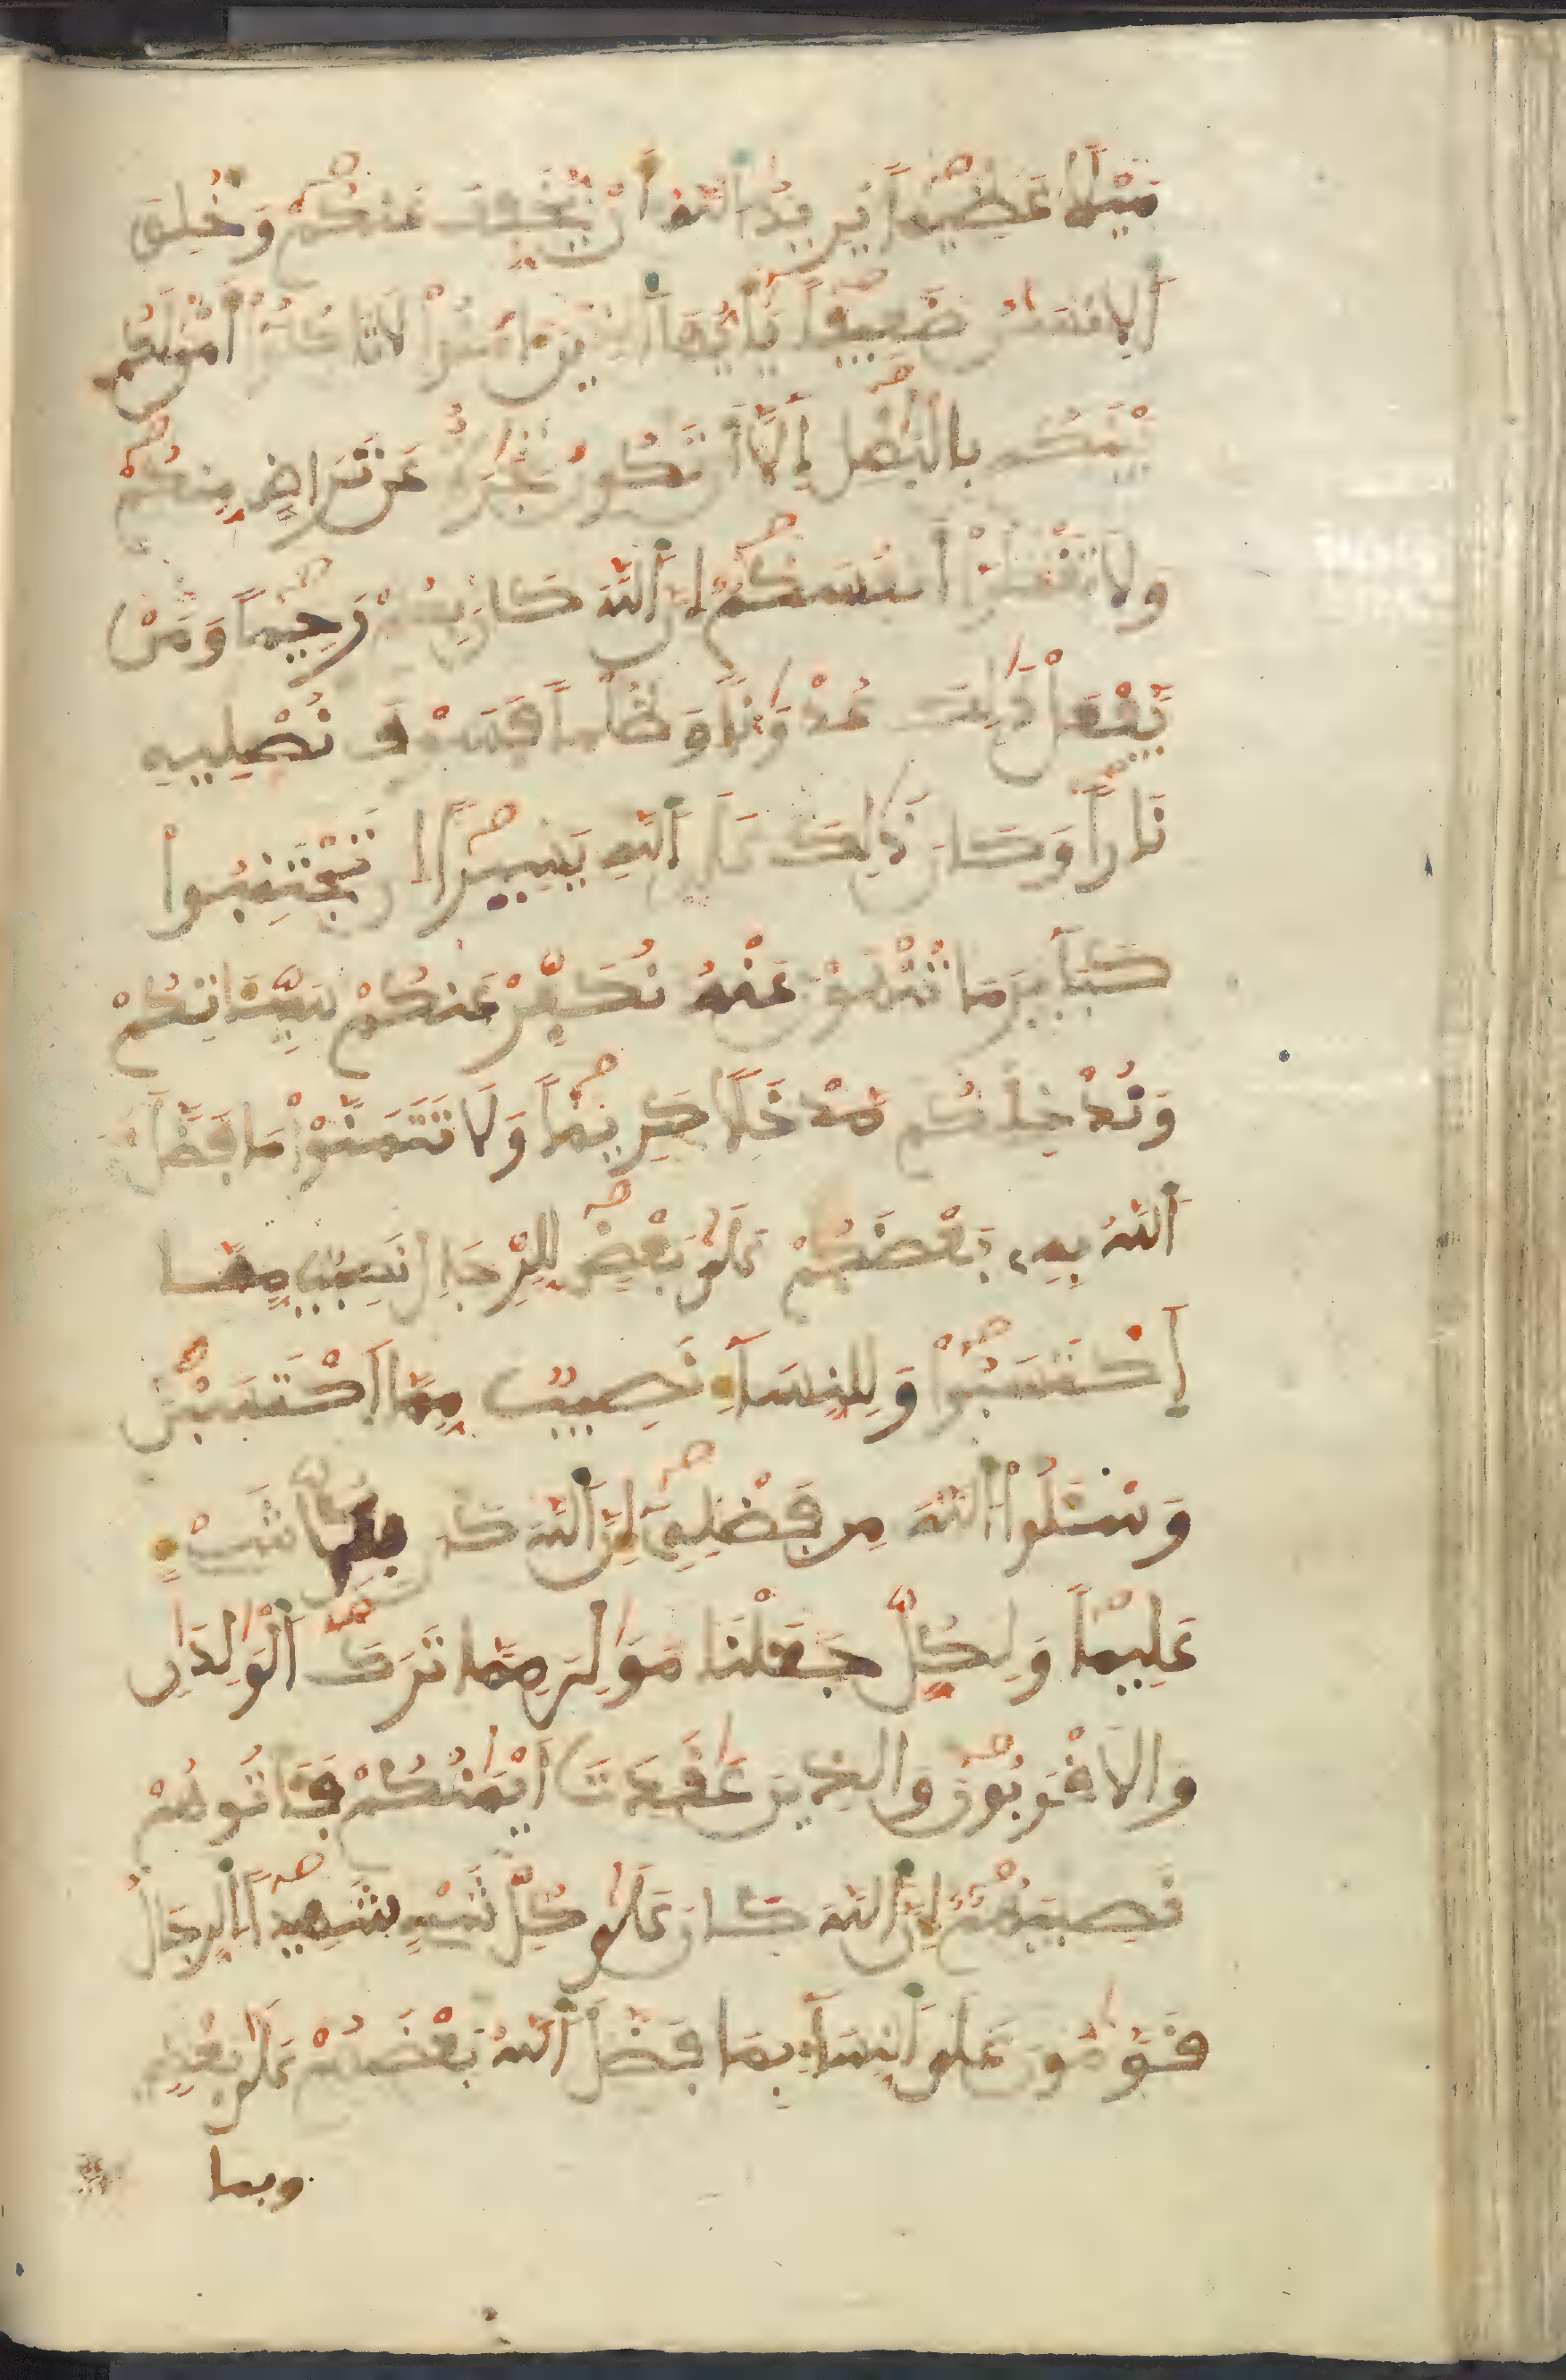 مَيْلاً عَظِيماً يُرِيدُ اَ۬للَّهُ أَنْ يُّخَفِّفَ عَنكُمْ وَخُلِقَ
اَ۬لِانسَٰنُ ضَعِيفاً يَٰأَيُّهَا اَ۬لذِينَ ءَامَنُواْ لَا تَاكُلُواْ أَمْوَٰلَكُم
بَيْنَكُم بِالْبَٰطِلِ إِلَّا أَن تَكُونَ تِجَٰرَةٌ عَن تَرَاضٍ مِّنكُمْ
وَلَا تَقْتُلُواْ أَنفُسَكُمْ إِنَّ اَ۬للَّهَ كَانَ بِكُمْ رَحِيماً وَمَنْ
يَّفْعَلْ ذَٰلِكَ عُدْوَٰناً وَظُلْماً فَسَوْفَ نُصْلِيهِ
نَاراً وَكَانَ ذَٰلِكَ عَلَى اَ۬للَّهِ يَسِيراً ان تَجْتَنِبُوا
كَبَآيِرَ مَا تُنْهَوْنَ عَنْهُ نُكَفِّرْ عَنكُمْ سَيِّـَٔاتِكُمْ
وَنُدْخِلْكُم مَّدْخَلاً كَرِيماً وَلَا تَتَمَنَّوْاْ مَا فَضَّلَ
اَ۬للَّهُ بِهِۦ بَعْضَكُمْ عَلَىٰ بَعْضٍ لِّلرِّجَالِ نَصِيبٌ مِّمَّا
اَ۪كْتَسَبُواْ وَلِلنِّسَآءِ نَصِيبٌ مِّمَّا اَ۪كْتَسَبْنَ
وَسْـَٔلُواْ اُ۬للَّهَ مِن فَضْلِهِۦٓ إِنَّ اَ۬للَّهَ كَانَ بِكُلِّ شَےْءٍ
عَلِيماً وَلِكُلٍّ جَعَلْنَا مَوَٰلِيَ مِمَّا تَرَكَ اَ۬لْوَٰلِدَٰنِ
وَالَاقْرَبُونَ وَالذِينَ عَٰقَدَتَ اَيْمَٰنُكُمْ فَـَٔاتُوهُمْ
نَصِيبَهُمُۥٓ إِنَّ اَ۬للَّهَ كَانَ عَلَىٰ كُلِّ شَےْءٍ شَهِيداً اَ۬لرِّجَالُ
قَوَّٰمُونَ عَلَى اَ۬لنِّسَآءِ بِمَا فَضَّلَ اَ۬للَّهُ بَعْضَهُمْ عَلَىٰ بَعْضٍ
وبما